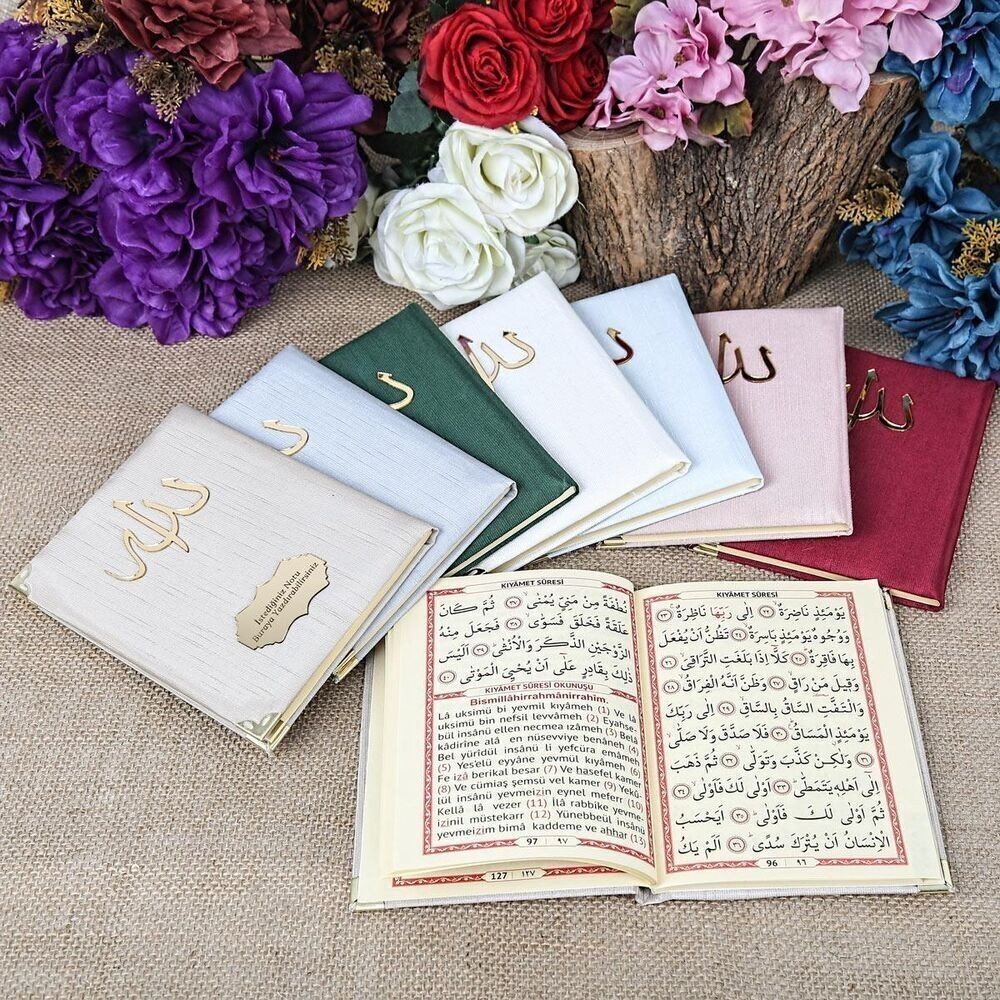 İstediğiniz Notu
Buraya Yazdırabilirsiniz
KIYÂMET SÛRESİ
يَوْمَئِذٍ نَاضِرَةٌ ﴿٢٢﴾ اِلٰى رَبِّهَا نَاظِرَةٌ ﴿٢٣﴾
وَوُجُوهٌ يَوْمَئِذٍ بَاسِرَةٌ ﴿٢٤﴾ تَظُنُّ اَنْ يُفْعَلَ
بِهَا فَاقِرَةٌ ﴿٢٥﴾ كَلَّا اِذَا بَلَغَتِ التَّرَاقِيَ ﴿٢٦﴾
وَق۪يلَ مَنْ رَاقٍ ﴿٢٧﴾ وَظَنَّ اَنَّهُ الْفِرَاقُ ﴿٢٨﴾
وَالْتَفَّتِ السَّاقُ بِالسَّاقِ ﴿٢٩﴾ اِلٰى رَبِّكَ
يَوْمَئِذٍ الْمَسَاقُ ﴿٣٠﴾ فَلَا صَدَّقَ وَلَا صَلّٰى
﴿٣١﴾ وَلٰكِنْ كَذَّبَ وَتَوَلّٰى ﴿٣٢﴾ ثُمَّ ذَهَبَ
اِلٰٓى اَهْلِه۪ يَتَمَطّٰى ﴿٣٣﴾ اَوْلٰى لَكَ فَاَوْلٰى ﴿٣٤﴾
ثُمَّ اَوْلٰى لَكَ فَاَوْلٰى ﴿٣٥﴾ اَيَحْسَبُ
الْاِنْسَانُ اَنْ يُتْرَكَ سُدًى ﴿٣٦﴾ اَلَمْ يَكُ
96 | ٩٦
KIYÂMET SÛRESİ
نُطْفَةً مِنْ مَنِيٍّ يُمْنٰى ﴿٣٧﴾ ثُمَّ كَانَ
عَلَقَةً فَخَلَقَ فَسَوّٰى ﴿٣٨﴾ فَجَعَلَ مِنْهُ
الزَّوْجَيْنِ الذَّكَرَ وَالْاُنْثٰى ﴿٣٩﴾ اَلَيْسَ
ذٰلِكَ بِقَادِرٍ عَلٰٓى اَنْ يُحْيِيَ الْمَوْتٰى ﴿٤٠﴾
KIYÂMET SÛRESİ OKUNUŞU
Bismillâhirrahmânirrahîm.
Lâ uksimü bi yevmil kıyâmeh (1) Ve lâ
uksimü bin nefsil levvâmeh (2) Eyahse-
bül insânü ellen necmea ızâmeh (3) Belâ
kâdirîne alâ en nüsevviye benâneh (4)
Bel yürîdül insânü li yefcüra emâmeh
(5) Yes'elü eyyâne yevmül kıyâmeh (6)
Fe izâ berikal besar (7) Ve hasefel kamer
(8) Ve cümiaş şemsü vel kamer (9) Yekû-
lül insânü yevmeizin eynel meferr (10)
Kellâ lâ vezer (11) İlâ rabbike yevme-
izinil müstekarr (12) Yünebbeül insânü
yevmeizim bimâ kaddeme ve ahhar (13)
97 | ٩٧
127 | ١٢٧